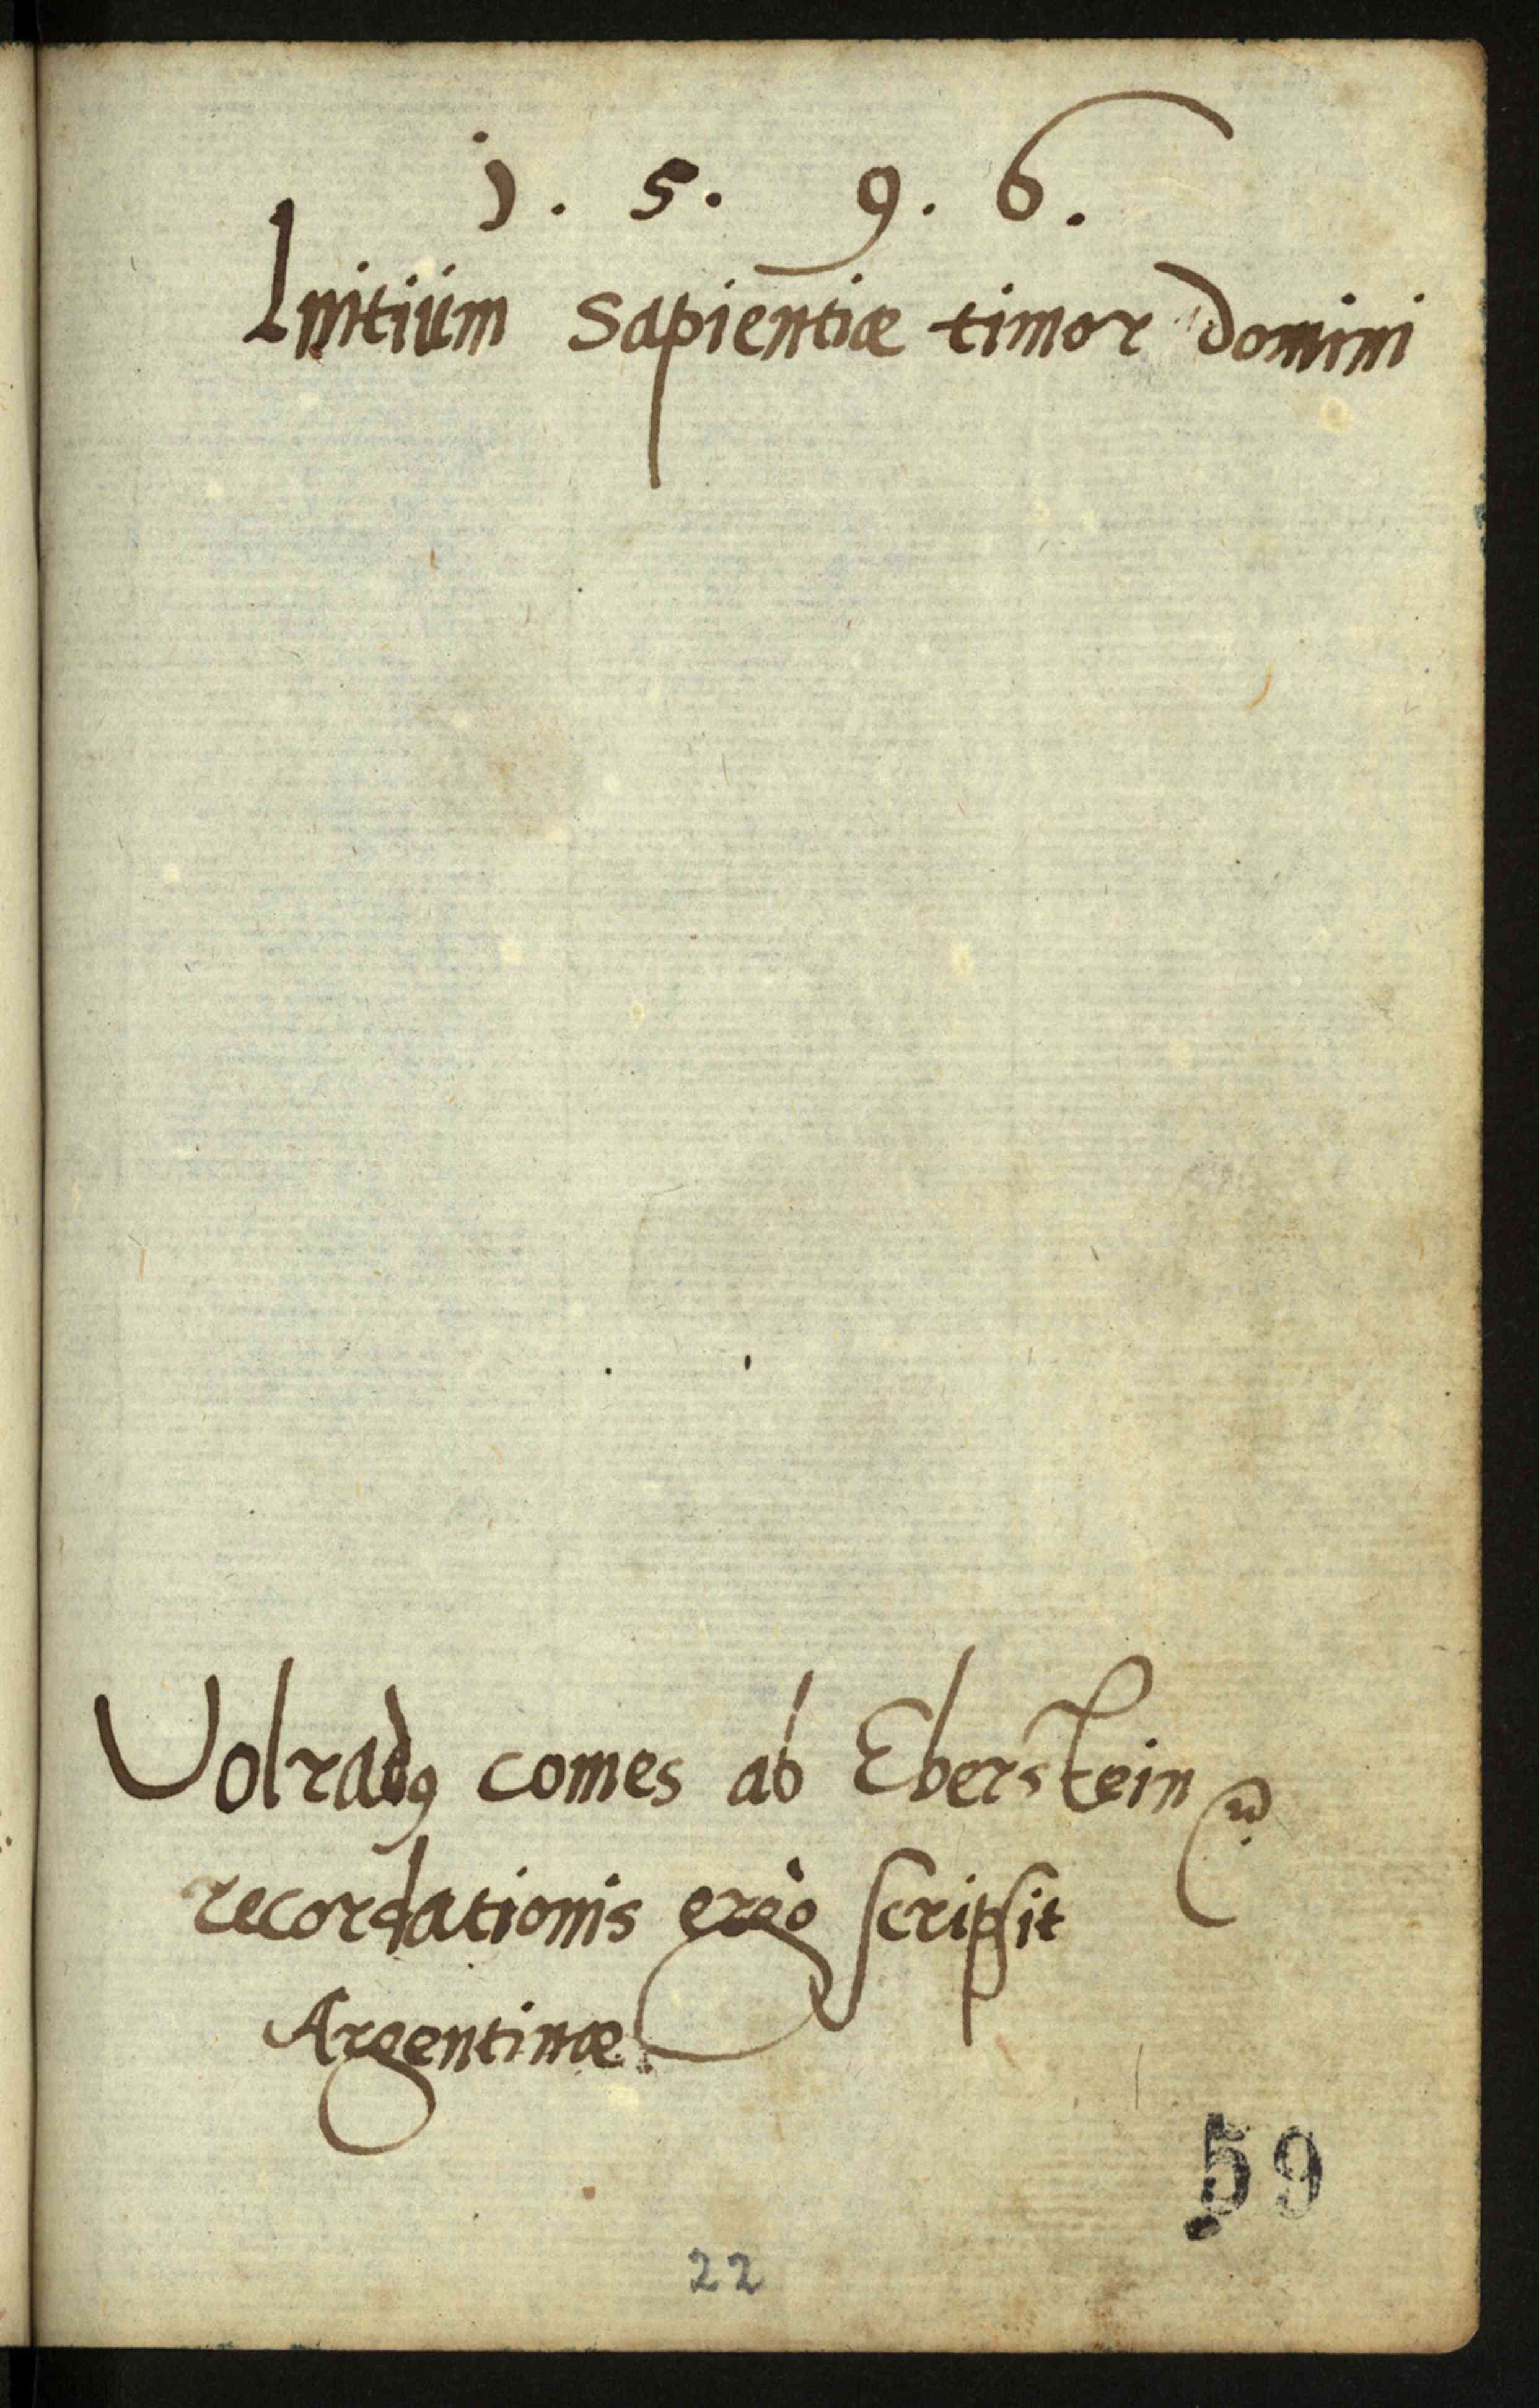 1. 5. 9. 6.
Initium sapientiæ timor domini
Volradꝰ comes ab Eberstein
recordationis ergò scripsit
Argentinæ.
59
22